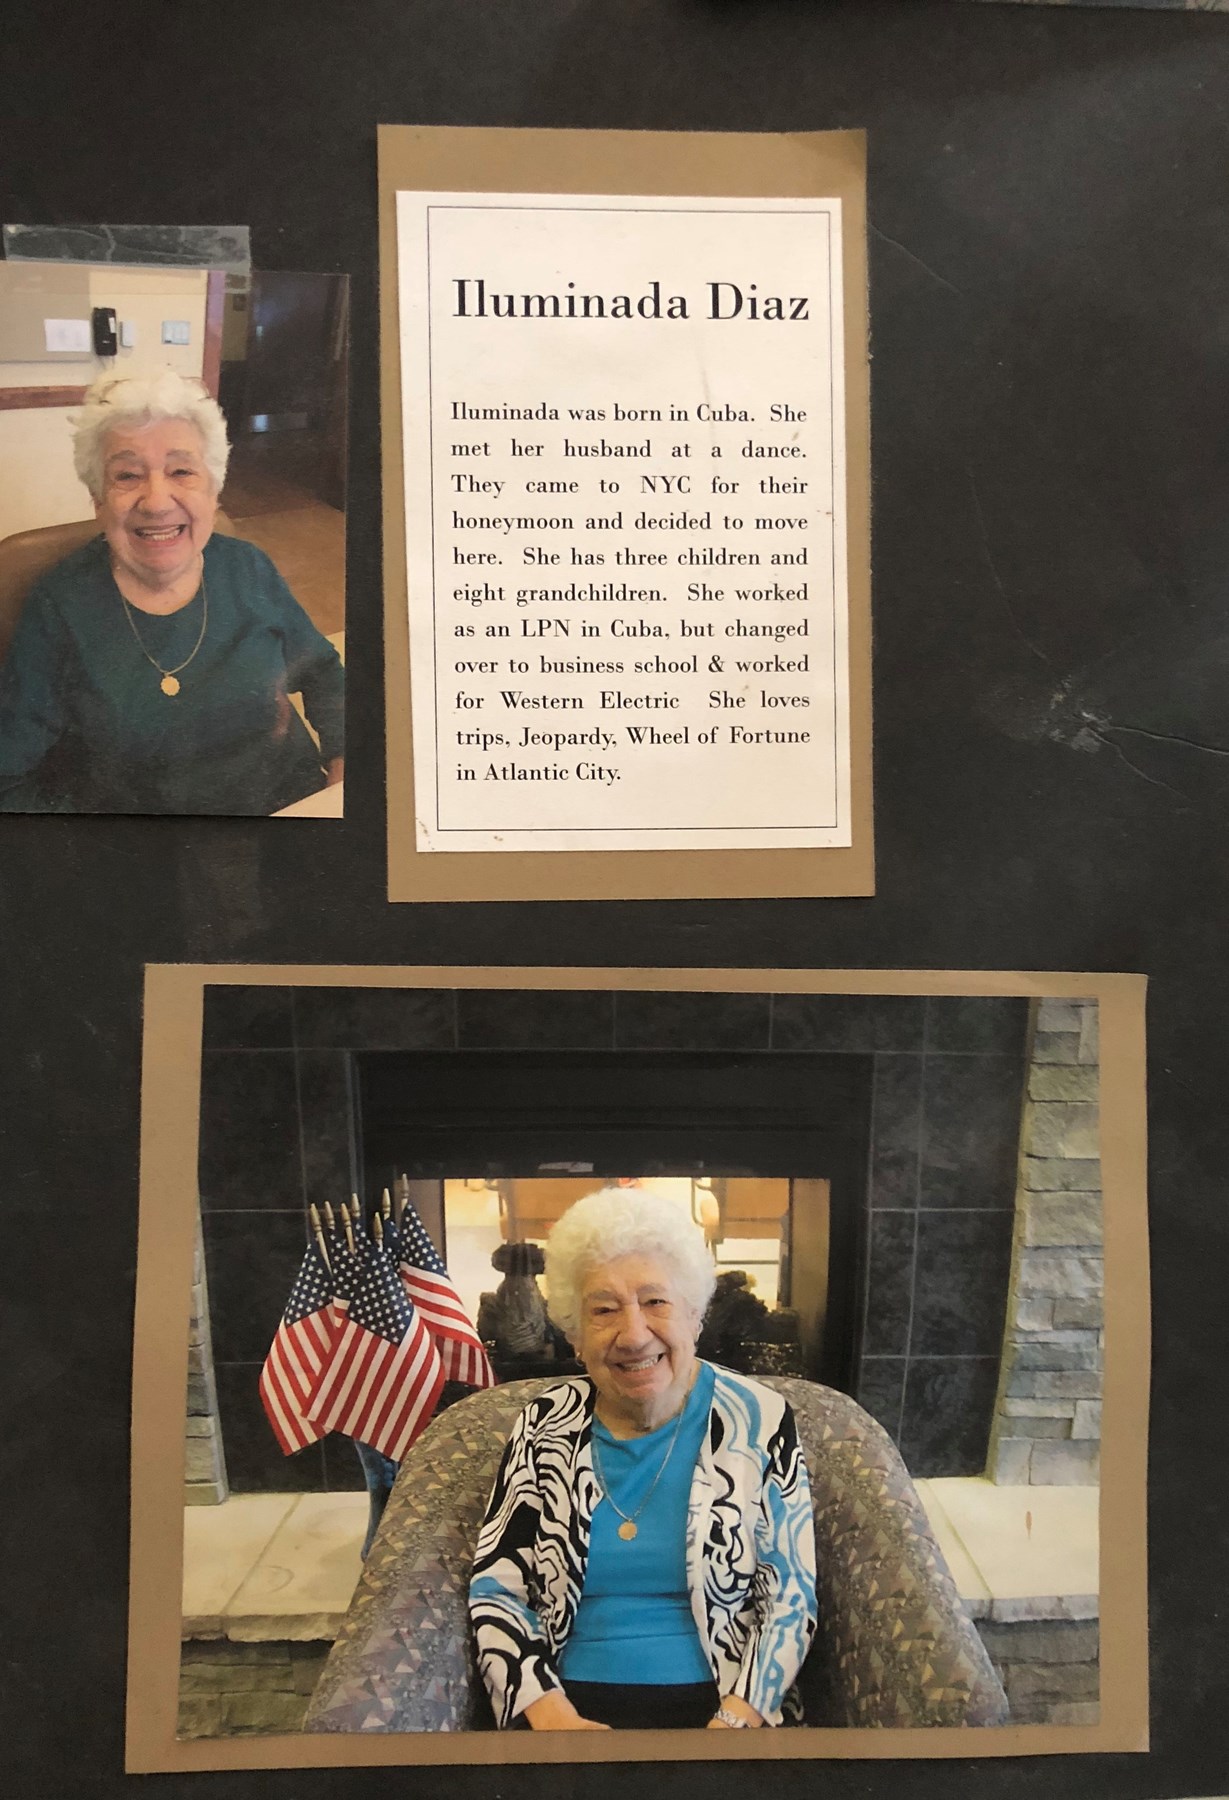 Iluminada Diaz
Iluminada was born in Cuba. She
met her husband at a dance.
They came to NYC for their
honeymoon and decided to move
here. She has three children and
eight grandchildren. She worked
as an LPN in Cuba, but changed
over to business school & worked
for Western Electric She loves
trips, Jeopardy, Wheel of Fortune
in Atlantic City.